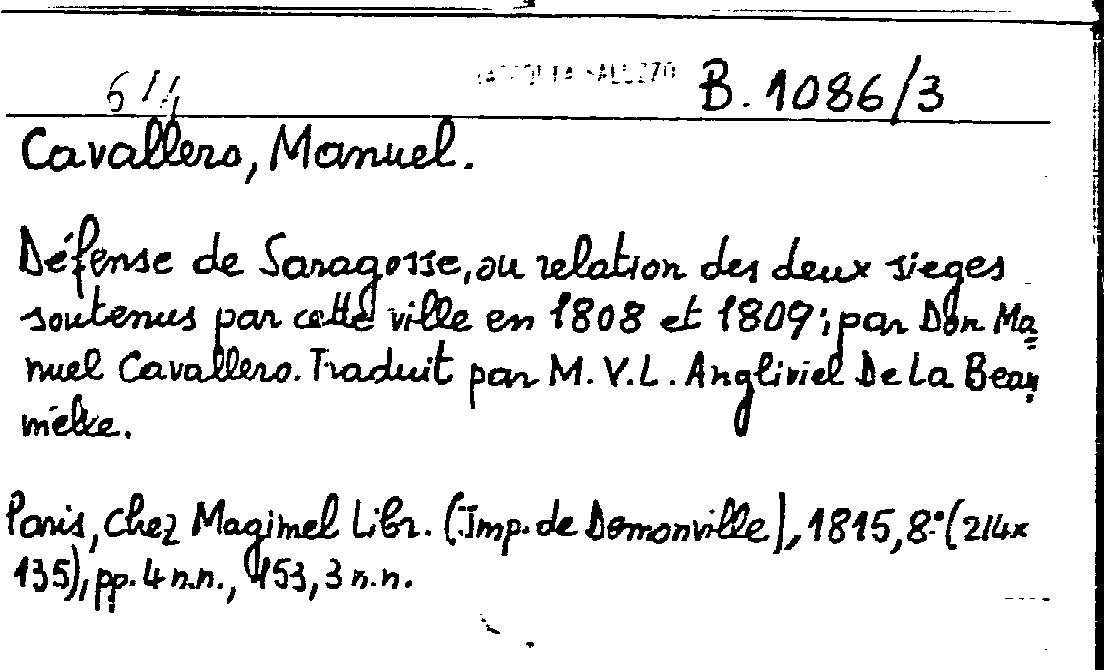 614 RACCOLTA SALUZZO B. 1086/3
Cavallero, Manuel.
Défense de Saragosse, ou relation des deux sieges
soutenus par cette ville en 1808 et 1809; par Don Ma=
nuel Cavallero. Traduit par M. V. L. Angliviel De La Beau=
melle.
Paris, chez Magimel Libr. (Imp. de Demonville), 1815, 8° (214x
135), pp. 4 n.n., 153, 3 n.n.